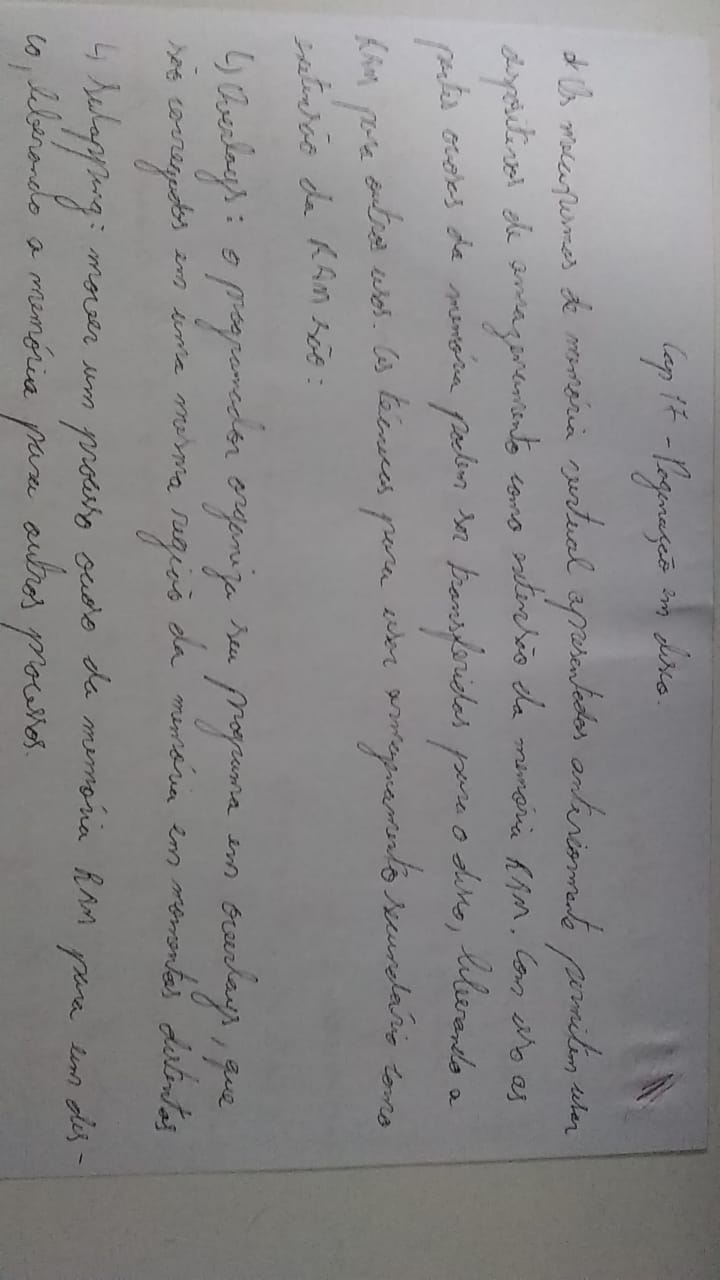 Cap 17 - Paginação em disco.
* Os mecanismos de memória virtual apresentados anteriormente permitem usar
dispositivos de armazenamento como extensão da memória RAM. Com isso as
partes ociosas da memória podem ser transferidas para o disco, liberando a
RAM para outros usos. As técnicas para usar armazenamento secundário como
extensão da RAM são:
↳ Overlays: o programador organiza seu programa em overlays, que
são carregados em uma mesma região da memória em momentos distintos
↳ Swapping: mover um processo ocioso da memória RAM para um dis-
co, liberando a memória para outros processos.